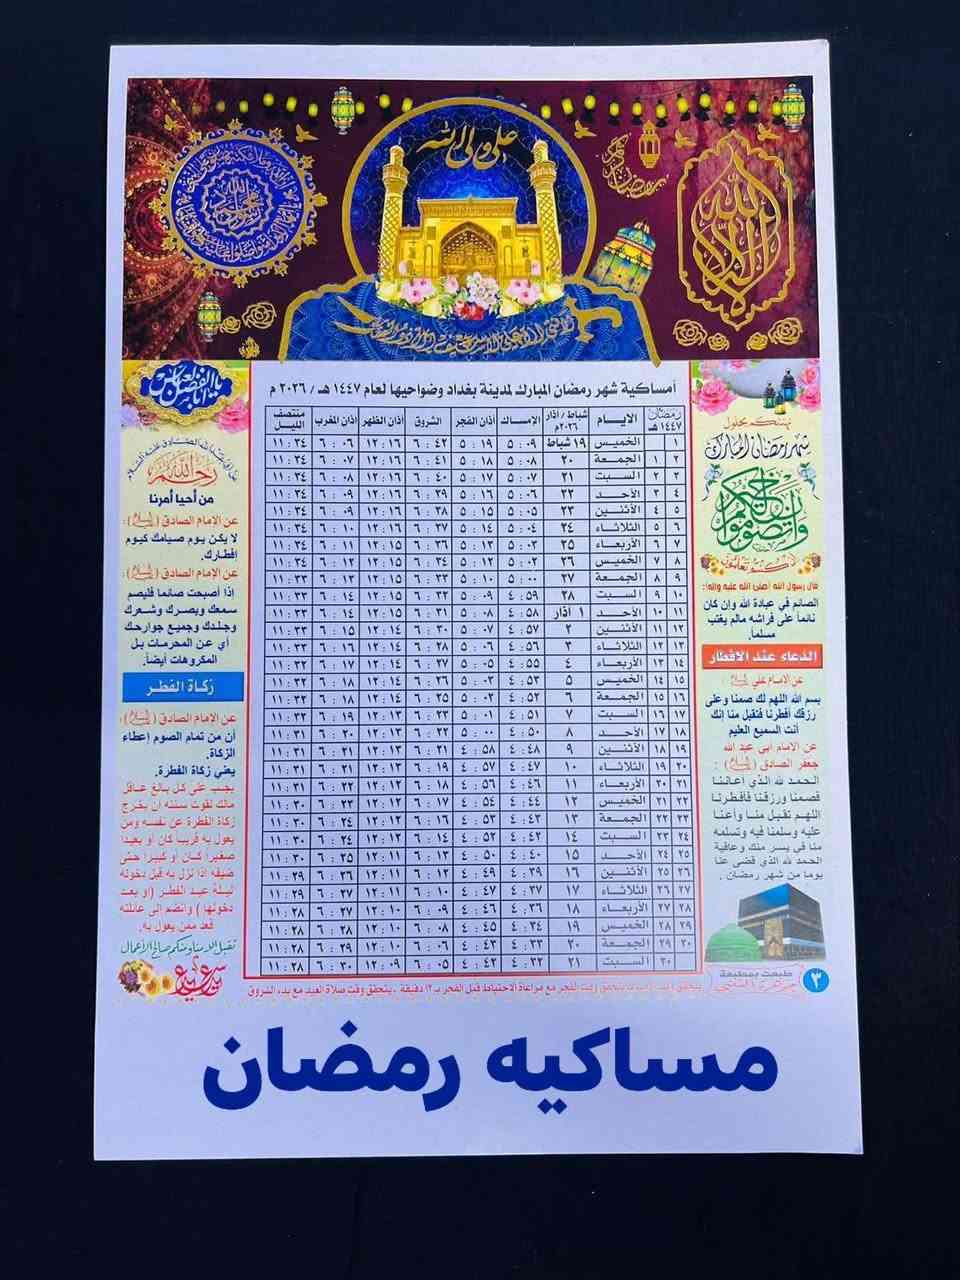 علي ولي الله
لا إله إلا الله
يا أبا الفضل العباس
أمساكية شهر رمضان المبارك لمدينة بغداد وضواحيها لعام ١٤٤٧ هـ / ٢٠٢٦ م
رمضان ١٤٤٧ هـ الايـــام شباط / آذار ٢٠٢٦م الإمساك أذان الفجر الشروق أذان الظهر أذان المغرب منتصف الليل
١ الخميس ١٩ شباط ٥:٠٩ ٥:١٩ ٦:٤٢ ١٢:١٦ ٦:٠٦ ١١:٣٤
٢ ١ الجمعة ٢٠ ٥:٠٨ ٥:١٨ ٦:٤١ ١٢:١٦ ٦:٠٧ ١١:٣٤
٣ ٢ السبت ٢١ ٥:٠٧ ٥:١٧ ٦:٤٠ ١٢:١٦ ٦:٠٨ ١١:٣٤
٤ ٣ الأحد ٢٢ ٥:٠٦ ٥:١٦ ٦:٣٩ ١٢:١٦ ٦:٠٩ ١١:٣٤
٥ ٤ الأثنين ٢٣ ٥:٠٥ ٥:١٥ ٦:٣٨ ١٢:١٦ ٦:٠٩ ١١:٣٤
٦ ٥ الثلاثاء ٢٤ ٥:٠٤ ٥:١٤ ٦:٣٧ ١٢:١٦ ٦:١٠ ١١:٣٤
٧ ٦ الأربعاء ٢٥ ٥:٠٣ ٥:١٣ ٦:٣٦ ١٢:١٥ ٦:١١ ١١:٣٤
٨ ٧ الخميس ٢٦ ٥:٠٢ ٥:١٢ ٦:٣٤ ١٢:١٥ ٦:١٢ ١١:٣٣
٩ ٨ الجمعة ٢٧ ٥:٠٠ ٥:١٠ ٦:٣٣ ١٢:١٥ ٦:١٣ ١١:٣٣
١٠ ٩ السبت ٢٨ ٤:٥٩ ٥:٠٩ ٦:٣٢ ١٢:١٥ ٦:١٤ ١١:٣٣
١١ ١٠ الأحد ١ آذار ٤:٥٨ ٥:٠٨ ٦:٣١ ١٢:١٥ ٦:١٤ ١١:٣٣
١٢ ١١ الأثنين ٢ ٤:٥٧ ٥:٠٧ ٦:٣٠ ١٢:١٤ ٦:١٥ ١١:٣٣
١٣ ١٢ الثلاثاء ٣ ٤:٥٦ ٥:٠٦ ٦:٢٨ ١٢:١٤ ٦:١٦ ١١:٣٣
١٤ ١٣ الأربعاء ٤ ٤:٥٥ ٥:٠٥ ٦:٢٧ ١٢:١٤ ٦:١٧ ١١:٣٢
١٥ ١٤ الخميس ٥ ٤:٥٣ ٥:٠٣ ٦:٢٦ ١٢:١٤ ٦:١٨ ١١:٣٢
١٦ ١٥ الجمعة ٦ ٤:٥٢ ٥:٠٢ ٦:٢٥ ١٢:١٤ ٦:١٨ ١١:٣٢
١٧ ١٦ السبت ٧ ٤:٥١ ٥:٠١ ٦:٢٣ ١٢:١٣ ٦:١٩ ١١:٣٢
١٨ ١٧ الأحد ٨ ٤:٥٠ ٥:٠٠ ٦:٢٢ ١٢:١٣ ٦:٢٠ ١١:٣١
١٩ ١٨ الأثنين ٩ ٤:٤٨ ٤:٥٨ ٦:٢١ ١٢:١٣ ٦:٢١ ١١:٣١
٢٠ ١٩ الثلاثاء ١٠ ٤:٤٧ ٤:٥٧ ٦:١٩ ١٢:١٣ ٦:٢١ ١١:٣١
٢١ ٢٠ الأربعاء ١١ ٤:٤٦ ٤:٥٦ ٦:١٨ ١٢:١٢ ٦:٢٢ ١١:٣١
٢٢ ٢١ الخميس ١٢ ٤:٤٤ ٤:٥٤ ٦:١٧ ١٢:١٢ ٦:٢٣ ١١:٣٠
٢٣ ٢٢ الجمعة ١٣ ٤:٤٣ ٤:٥٣ ٦:١٦ ١٢:١٢ ٦:٢٤ ١١:٣٠
٢٤ ٢٣ السبت ١٤ ٤:٤٢ ٤:٥٢ ٦:١٤ ١٢:١٢ ٦:٢٤ ١١:٣٠
٢٥ ٢٤ الأحد ١٥ ٤:٤٠ ٤:٥٠ ٦:١٣ ١٢:١١ ٦:٢٥ ١١:٣٠
٢٦ ٢٥ الأثنين ١٦ ٤:٣٩ ٤:٤٩ ٦:١٢ ١٢:١١ ٦:٢٦ ١١:٢٩
٢٧ ٢٦ الثلاثاء ١٧ ٤:٣٧ ٤:٤٧ ٦:١٠ ١٢:١١ ٦:٢٧ ١١:٢٩
٢٨ ٢٧ الأربعاء ١٨ ٤:٣٦ ٤:٤٦ ٦:٠٩ ١٢:١٠ ٦:٢٧ ١١:٢٨
٢٩ ٢٨ الخميس ١٩ ٤:٣٤ ٤:٤٥ ٦:٠٨ ١٢:١٠ ٦:٢٨ ١١:٢٨
٣٠ ٢٩ الجمعة ٢٠ ٤:٣٣ ٤:٤٣ ٦:٠٦ ١٢:١٠ ٦:٢٩ ١١:٢٨
٣٠ السبت ٢١ ٤:٣٢ ٤:٤٢ ٦:٠٥ ١٢:٠٩ ٦:٣٠ ١١:٢٨
نهنئكم بحلول
شهر رمضان المبارك
وأن تصوموا خير لكم
إن كنتم تعلمون
قال رسول الله (صلى الله عليه وآله):
الصائم في عبادة الله وإن كان
نائماً على فراشه مالم يغتب
مسلماً.
الدعاء عند الافطار
عن الإمام علي (عليه السلام) :
بسم الله اللهم لك صمنا وعلى
رزقك أفطرنا فتقبل منا إنك
أنت السميع العليم
عن الإمام ابي عبد الله
جعفر الصادق (عليه السلام) :
الحمد لله الذي أعاننا
فصمنا ورزقنا فأفطرنا
اللهم تقبل منا وأعنا
عليه وسلمنا فيه وتسلمه
منا في يسر منك وعافية
الحمد لله الذي قضى عنا
يوما من شهر رمضان .
رحم الله
من أحيا أمرنا
عن الإمام الصادق (عليه السلام) :
لا يكن يوم صيامك كيوم
إفطارك.
عن الإمام الصادق (عليه السلام) :
إذا أصبحت صائما فليصم
سمعك وبصرك وشعرك
وجلدك وجميع جوارحك
أي عن المحرمات بل
المكروهات أيضاً.
زكاة الفطر
عن الإمام الصادق (عليه السلام) :
أن من تمام الصوم إعطاء
الزكاة.
يعني زكاة الفطرة.
يجب على كل بالغ عاقل
مالك لقوت سنته أن يخرج
زكاة الفطرة عن نفسه ومن
يعول به قريباً كان أو بعيداً
صغيراً كان أو كبيرا حتى
ضيفه إذا نزل به قبل دخوله
ليلة عيد الفطر (أو بعد
دخولها) وانضم إلى عائلته
فعد ممن يعول به.
تقبل الله منا ومنكم صالح الأعمال
عيد سعيد
طبعت بمطبعة
٣
يتحقق وقت الفجر مع مراعاة الاحتياط قبل الفجر بـ ١٢ دقيقة . يتحقق وقت صلاة العيد مع بدء الشروق
مساكيه رمضان